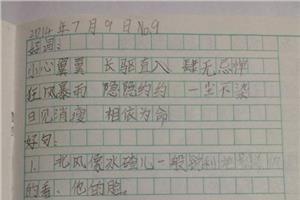 2014年7月9日 No.9
好词：
小心翼翼 长驱直入 肆无忌惮
狂风暴雨 隐隐约约 一尘不染
日见消瘦 相依为命
好句：
1. 北风像冰碴儿一般锐利地
的看、他的脸。